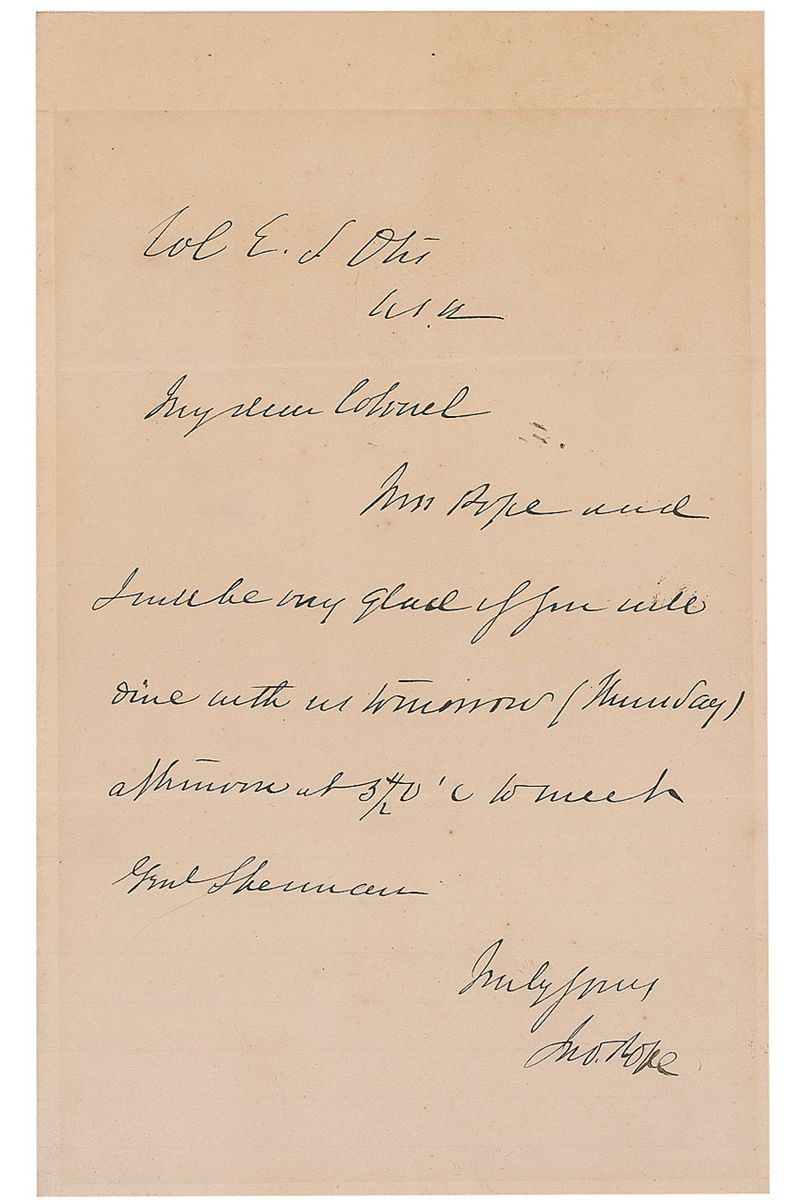 Col E. S Otis
U.S.A
My dear Colonel
Mrs Pope and
I will be very glad if you will
dine with us tomorrow (Thursday)
afternoon at 3½ O'c to meet
Genl Sherman
Truly yours
Jno. Pope